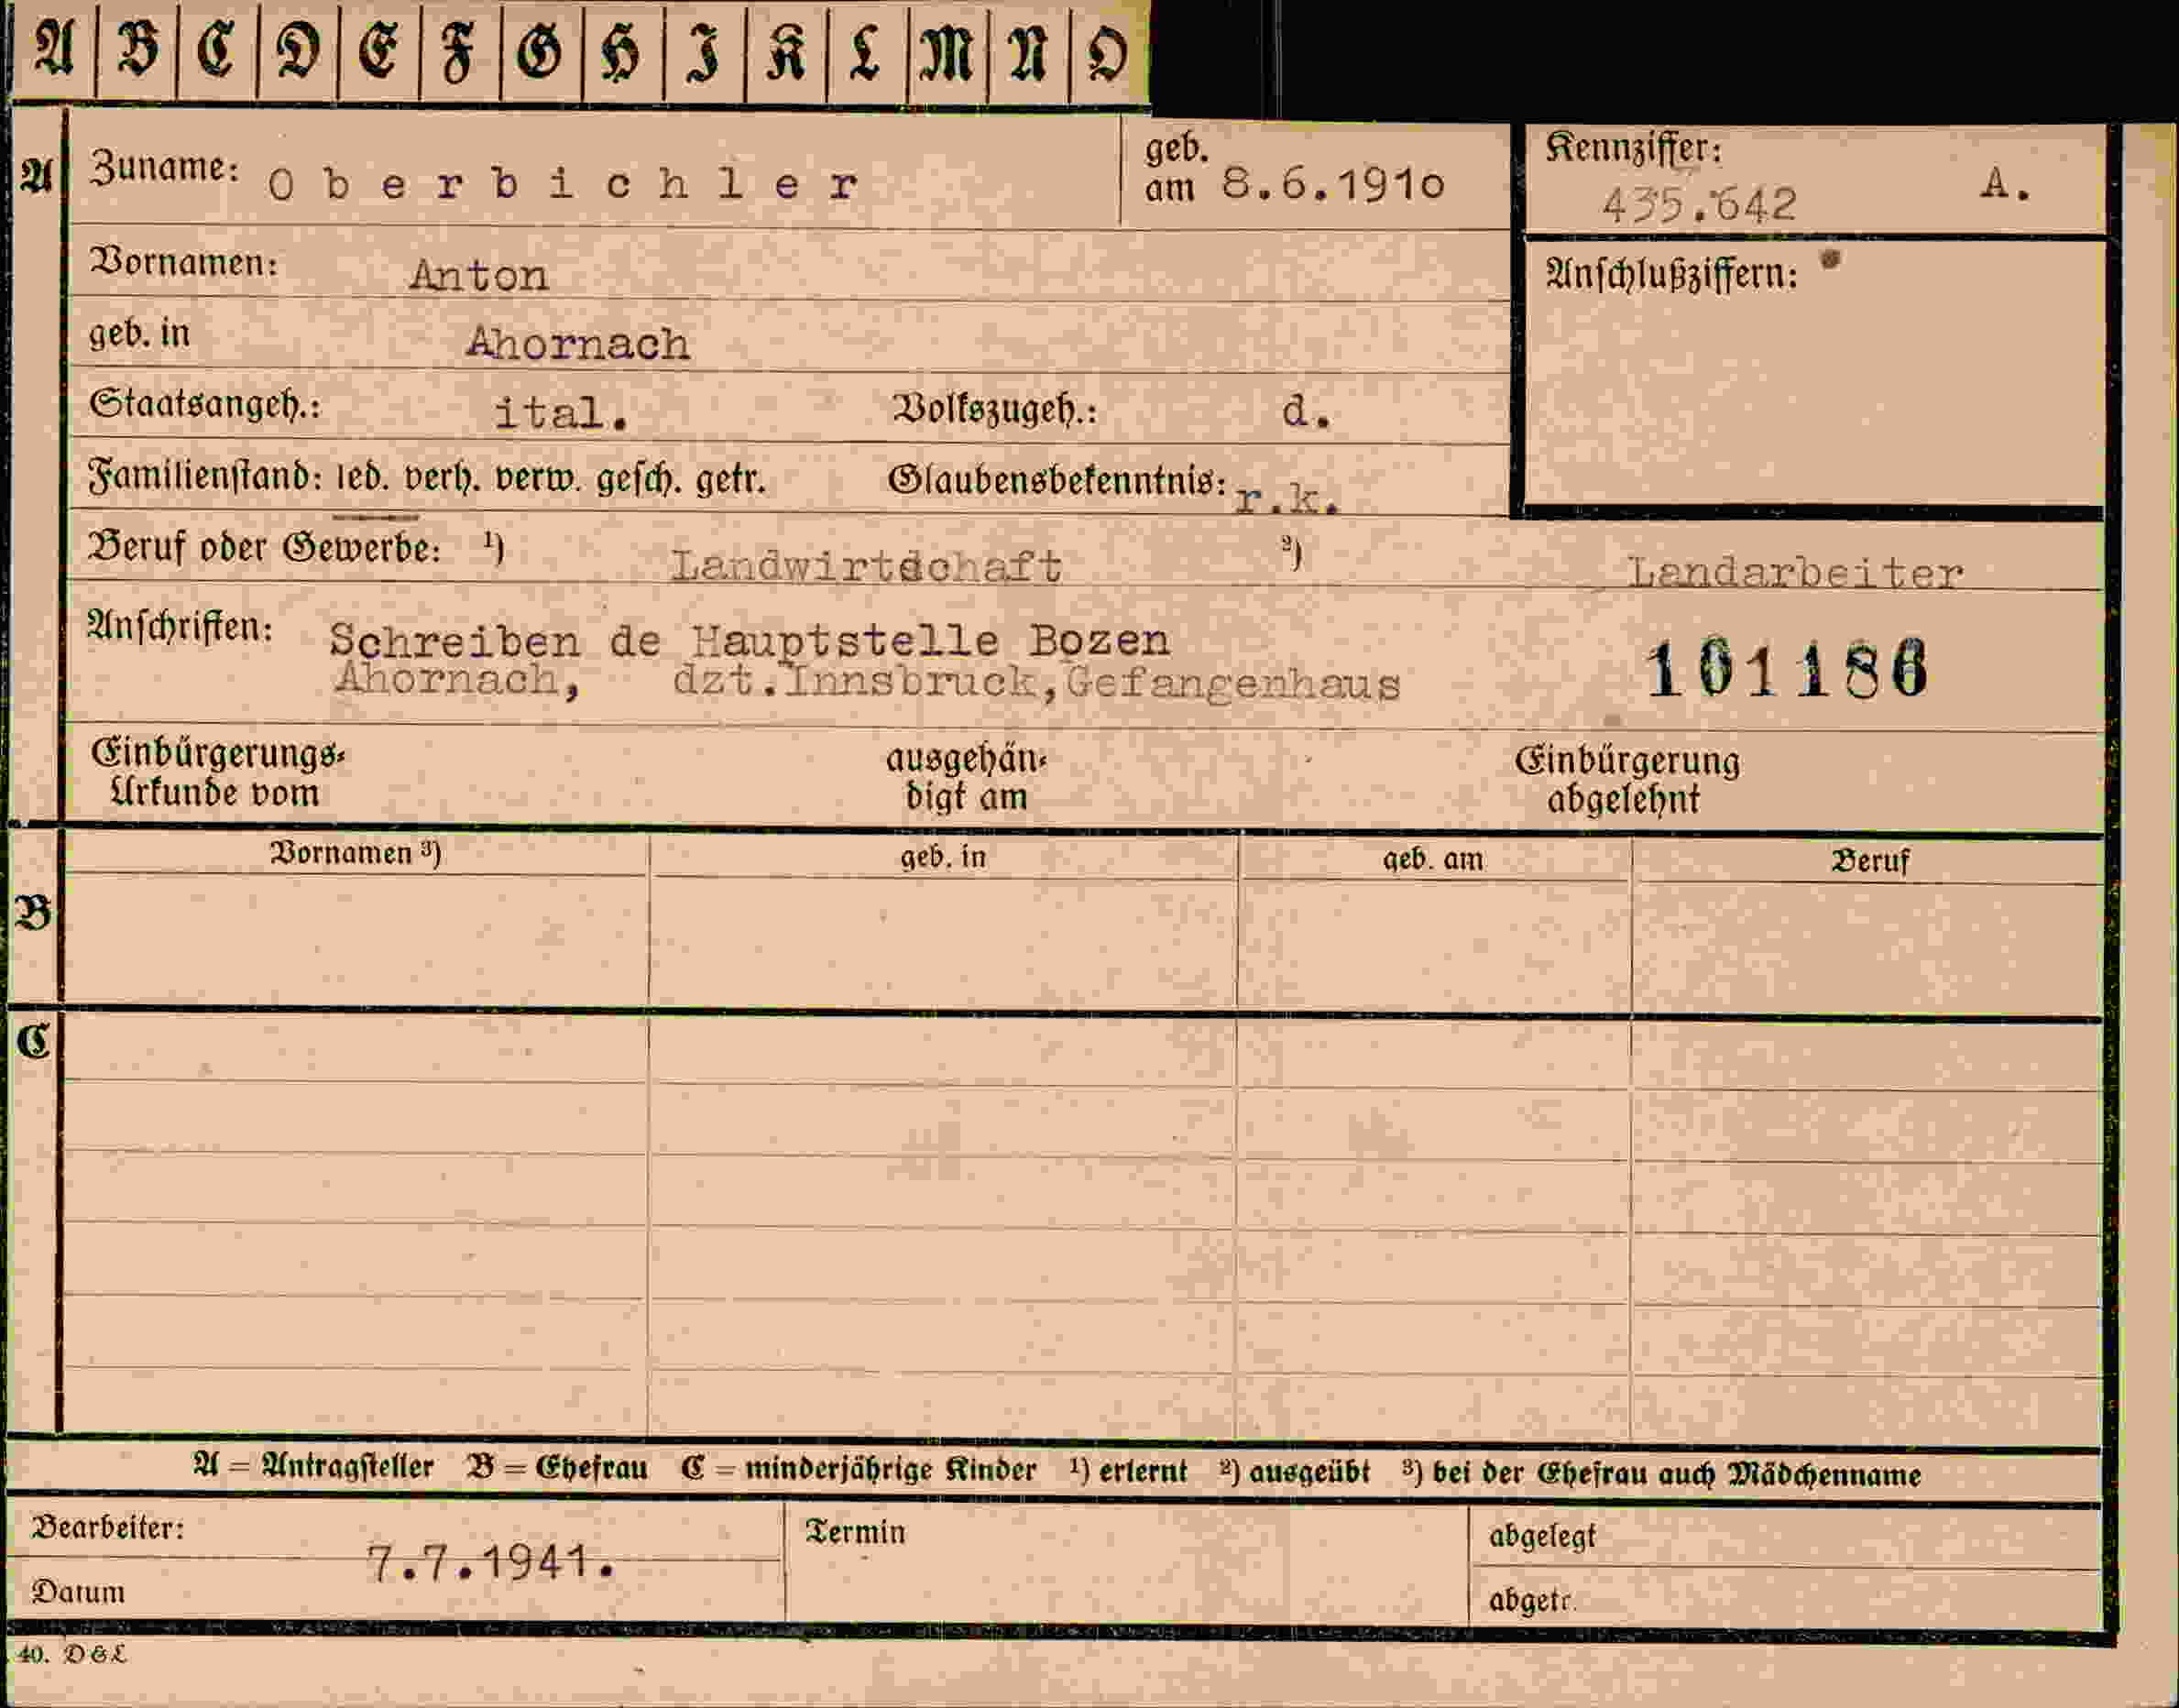 A B C D E F G H I K L M N O
A Zuname: Oberbichler geb. am 8.6.1910 Kennziffer: 435.642 A.
Vornamen: Anton Anschlußziffern:
geb. in Ahornach
Staatsangeh.: ital. Volkszugeh.: d.
Familienstand: led. verh. verw. gesch. getr. Glaubensbekenntnis: r.k.
Beruf oder Gewerbe: 1) Landwirtschaft 2) Landarbeiter
Anschriften: Schreiben de Hauptstelle Bozen
Ahornach, dzt.Innsbruck,Gefangenhaus 101186
Einbürgerungs- ausgehän- Einbürgerung
Urkunde vom digt am abgelehnt
Vornamen 3) geb. in geb. am Beruf
B
C
A = Antragsteller B = Ehefrau C = minderjährige Kinder 1) erlernt 2) ausgeübt 3) bei der Ehefrau auch Mädchenname
Bearbeiter: Termin abgelegt
7.7.1941.
Datum abgetr.
40. D&L